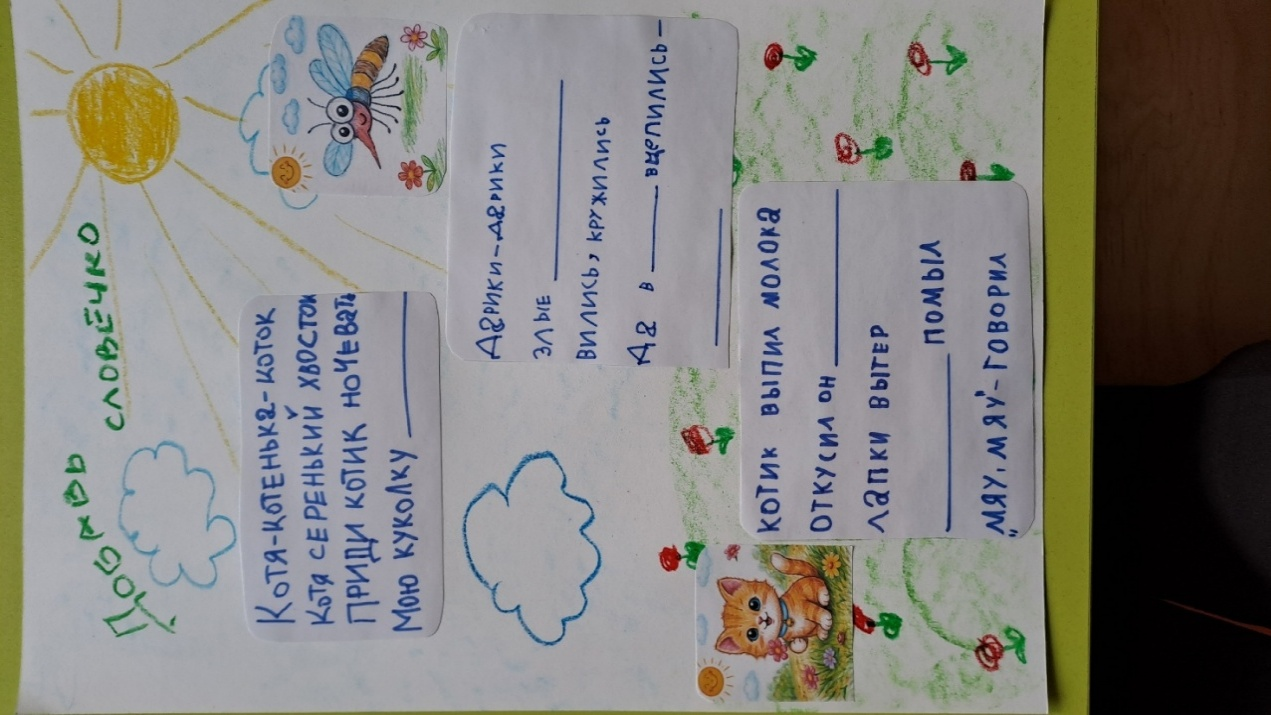 Добавь словечко
Котя-котенька-коток
Котя серенький хвосток
Приди котик ночевать
Мою куколку ______
Дарики-дарики
злые ______
вились, кружились
да в ______ вцепились –
______
Котик выпил молока
откусил он ______
лапки вытер
______ помыл
"мяу, мяу"- говорил